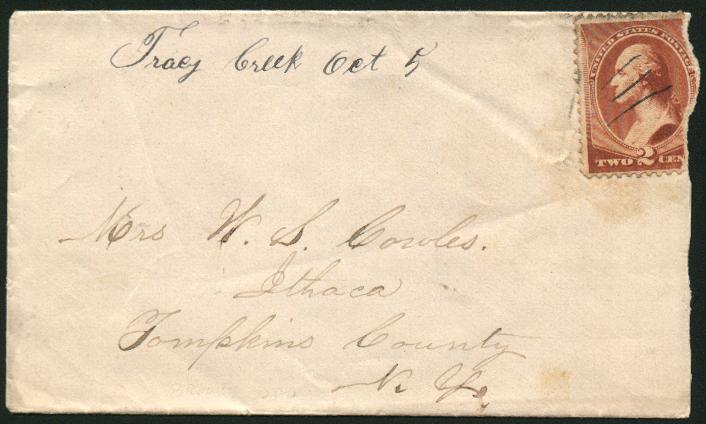 Tracy Creek Oct 5
UNITED STATES POSTAGE
TWO 2 CEN
Mrs W. S. Cowles.
Ithaca
Tompkins County
N. Y.